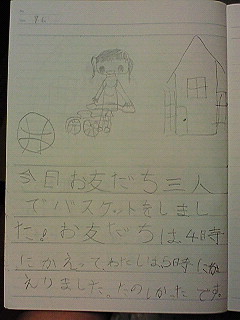 今日お友だち三人
でバスケットをしまし
た。お友だちは4時
にかえって、わたしは5時にか
えりました。たのしかったです。